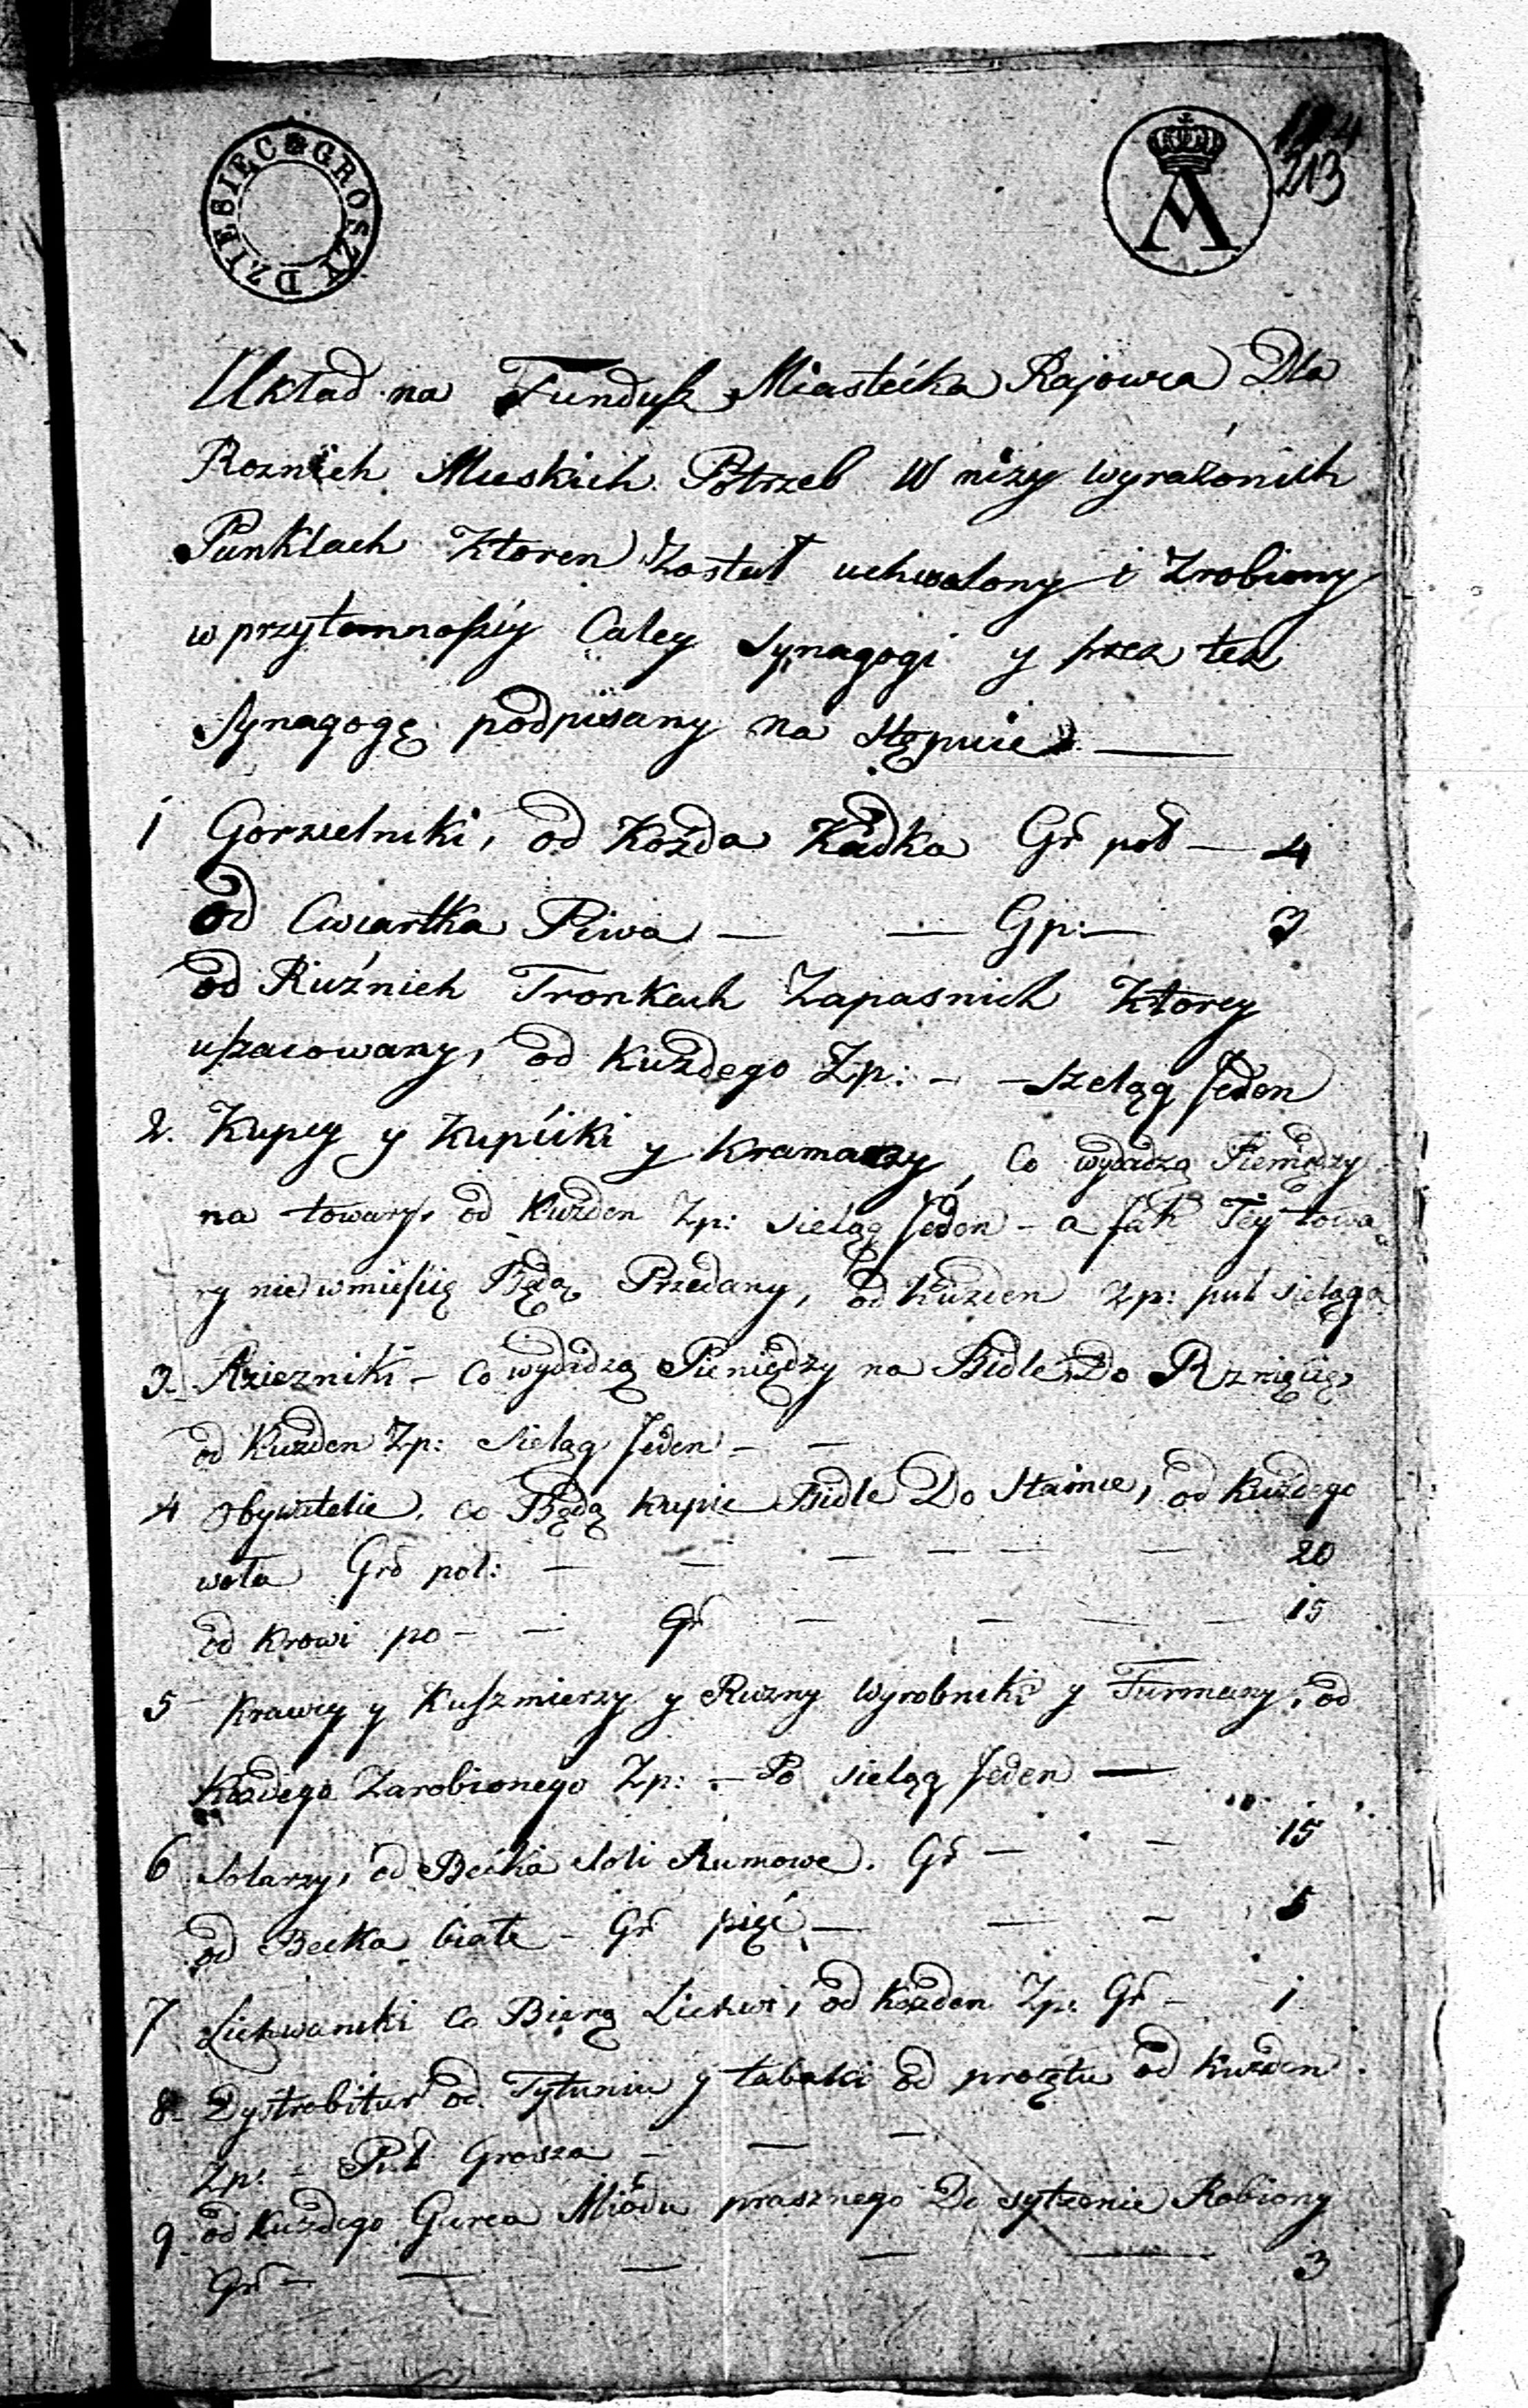 DZIESIĘC GROSZY
A
213
Układ na Fundusz Miastećka Rajowca Dla
Roznich Mieskich Potrzeb W niży wyrażonich
Punktach Ktoren Został uchwalony i Zrobiony
w przytomnośiy Caley Synagogi y przez tez
Synagogę podpisany na stępuie —
1 Gorzelniki, od Kożda Kadka Gr pol — 4
od Cwiartka Piwa — — Gp: — 3
od Ruźnich Tronkach Zapasnich Ktorey
uszacowany, od Kużdego Zp: — — szeląg Jeden
2. Kupcy y Kupćiki y Kramarzy, Co wydadzą Pieniędzy
na towary, od Kużden Zp: sieląg Jeden — a Jak Tey towa
ry nie w mieścię Będą Przedany, od Kużden Zp: puł sieląga
3. Rzezniki — Co wydadzą Pieniędzy na Bidle Do Rznięcię,
od Kużden Zp: sieląg Jeden — —
4 Obywatelie, co Będą Kupie Bidle Do Stainie, od Kużdego
woła Gro pol: — — — — — — 20
od Krowi po — — Gr — — — — 15
5 Krawcy y Kuszmierzy y Ruzny Wyrobniki y Furmany, od
Każdego Zarobionego Zp: — Po sieląg Jeden —
6 Solarzy, od Bećka Soli Rumowe. Gr — — 15
od Becka białe — Gr pięć — — — 5
7 Lichwaniki Co Bierą Lichwi, od Każden Zp: Gr — 1
8 — Dystrobitur od Tytuniu y tabaki od procętu od Kużden
Zp: — Puł Grosza — — —
9 od Kużdego Garca Miodu prasznego Do sytzenie Robiony
Gr — — — — — 3